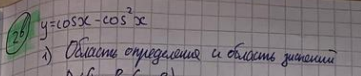 2б) y=cosx-cos²x
1) Область определения и область значений